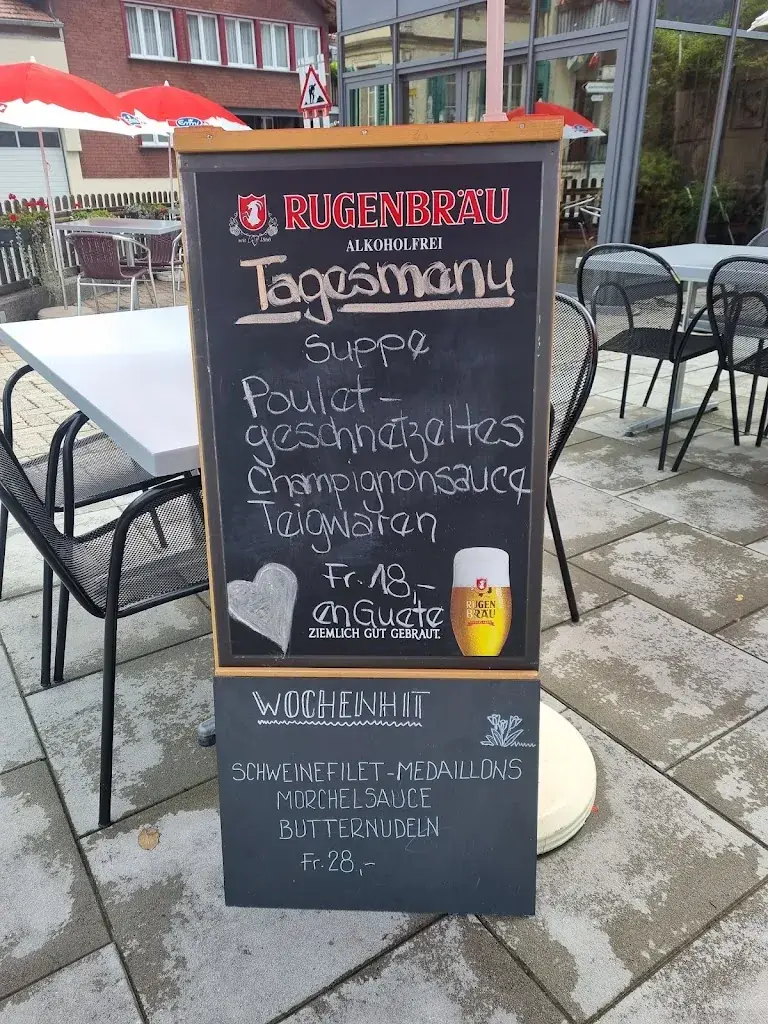 RUGENBRÄU
ALKOHOLFREI
Tagesmenu
Suppe
Poulet-
geschnetzeltes
Champignonsauce
Teigwaren
Fr. 18,-
en Guete
ZIEMLICH GUT GEBRAUT.
RUGEN
BRÄU
WOCHENHIT
SCHWEINEFILET-MEDAILLONS
MORCHELSAUCE
BUTTERNUDELN
Fr. 28,-